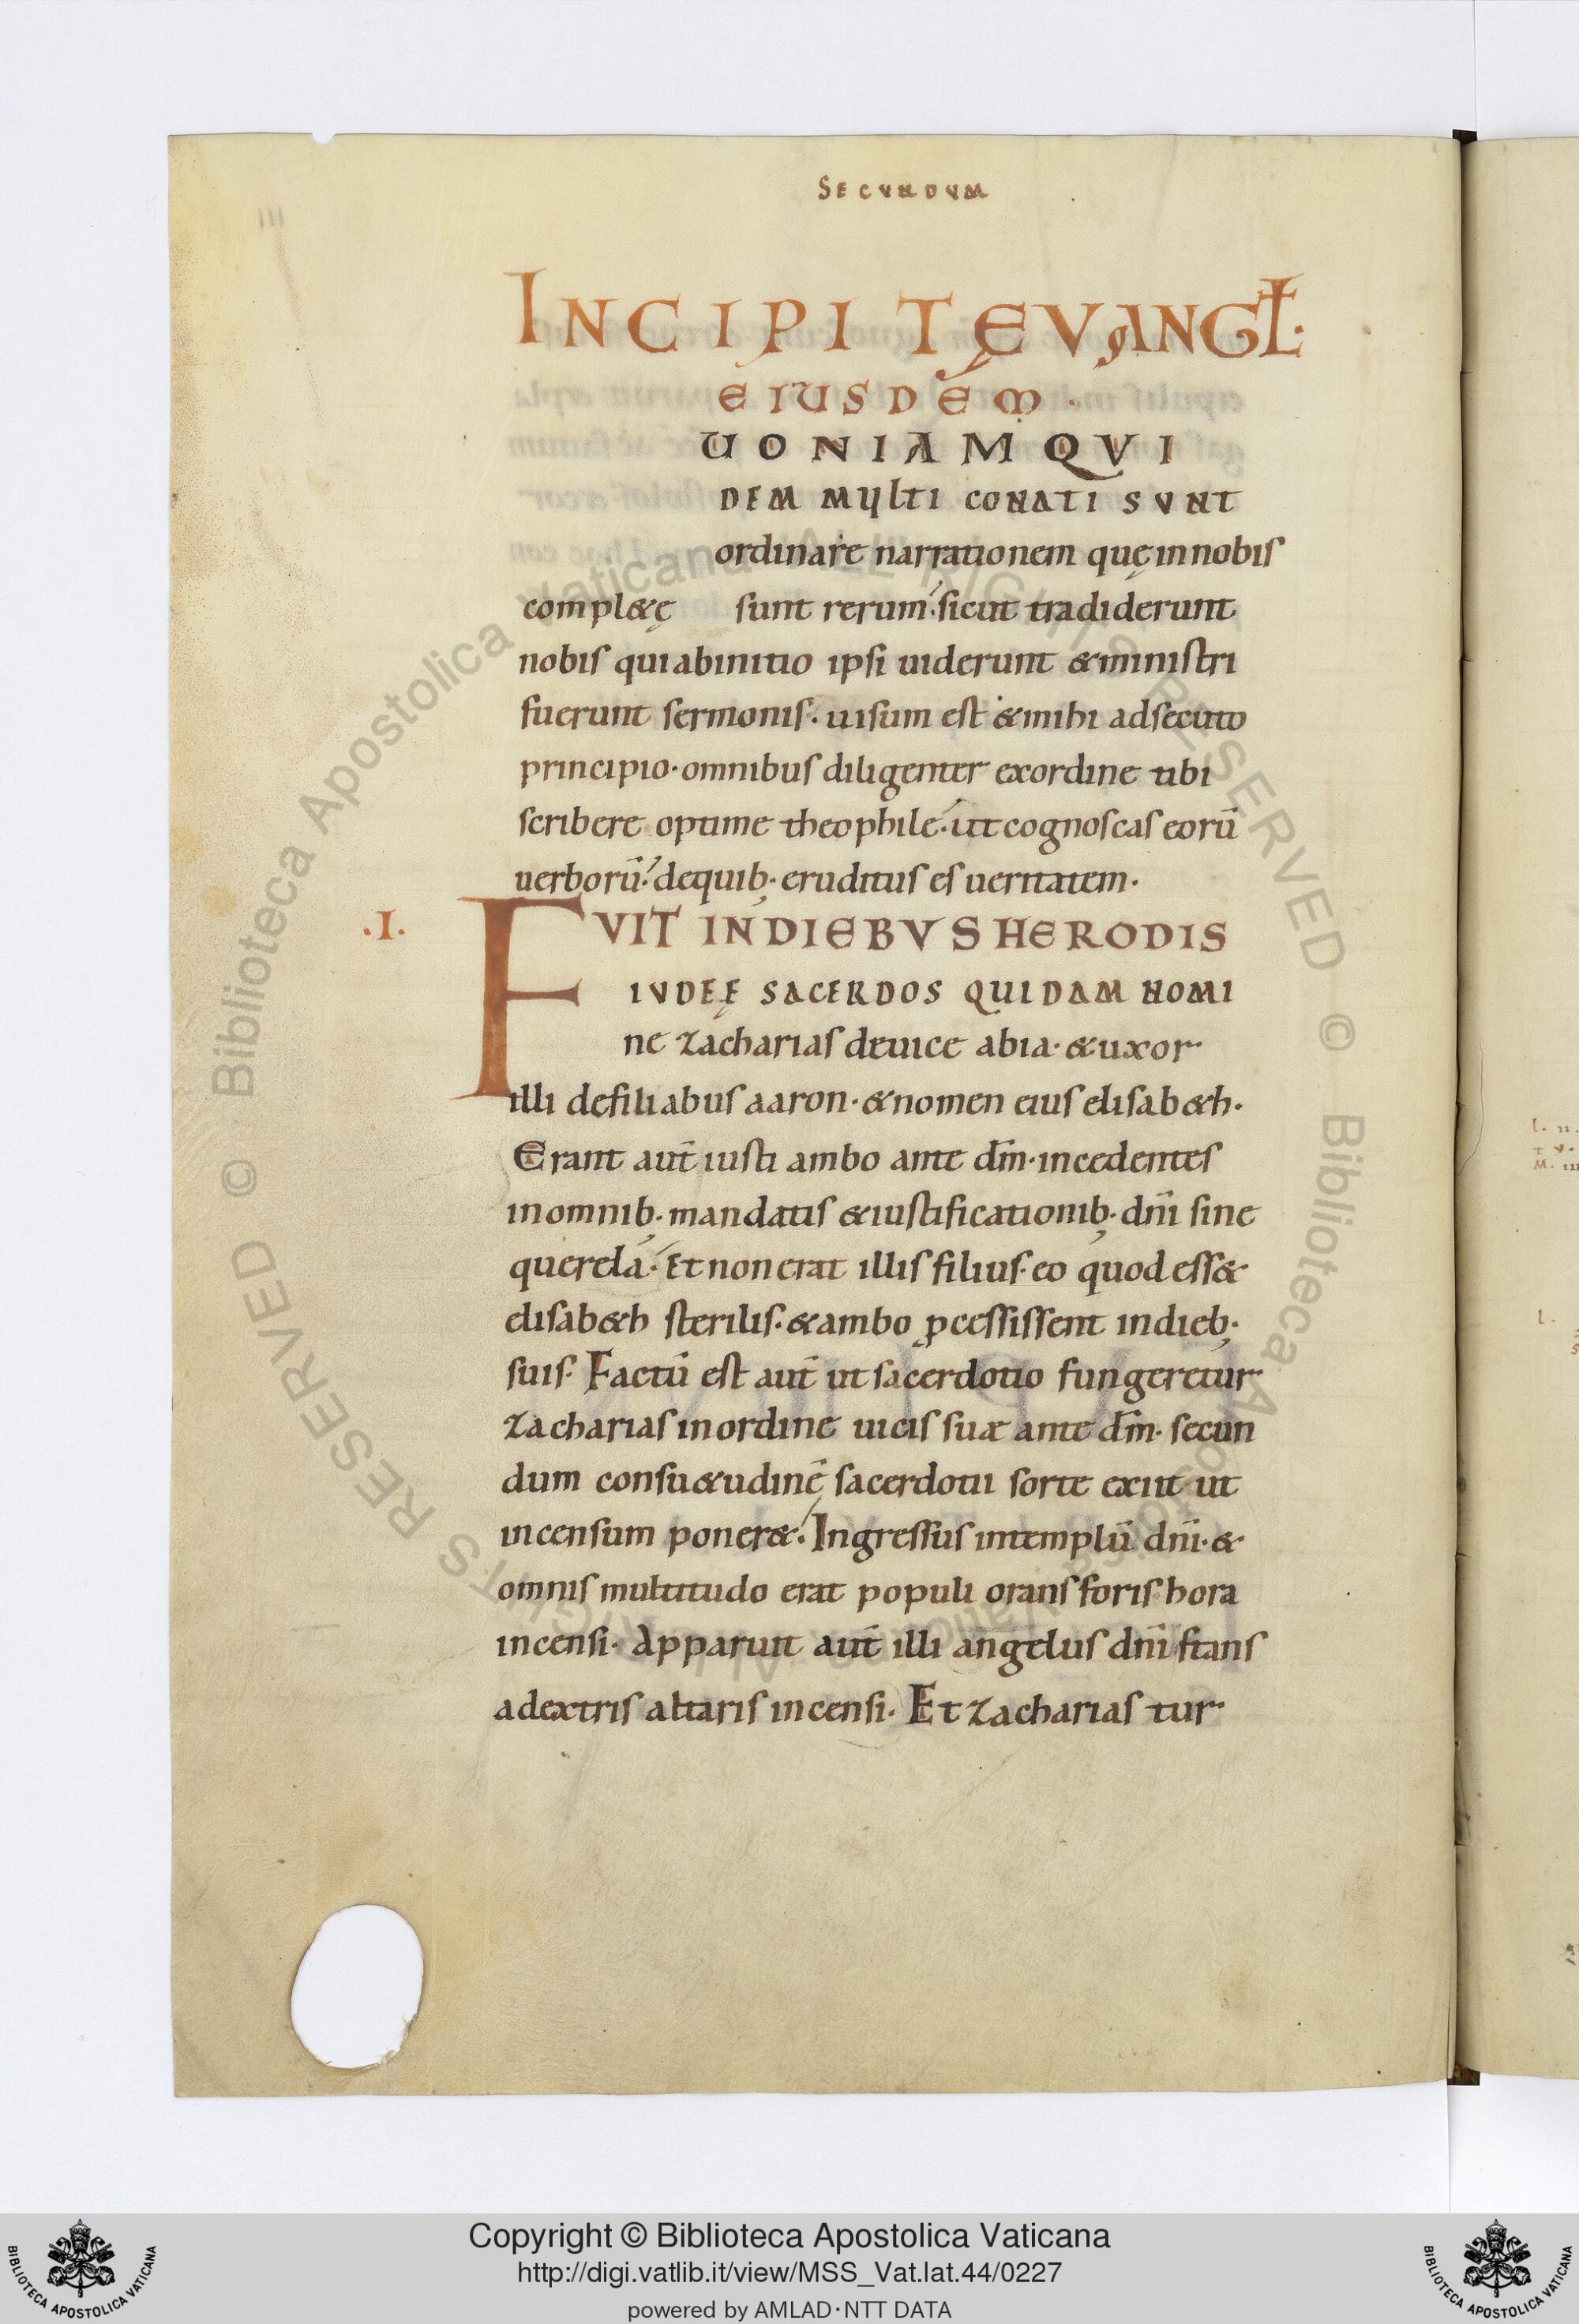 SECUNDUM
INCIPIT EVANGL̄·
EIUSDEM·
UONIAM QVI
DEM MULTI CONATI SVNT
ordinare narrationem quę innobis
compl&ę sunt rerum· sicut tradiderunt
nobis quiabinitio ipsi uiderunt &ministri
fuerunt sermonis· uisum est &mihi adsecuto
principio· omnibus diligenter exordine tibi
scribere optime theophile· ut cognoscas eorū
uerborū· dequib; eruditus es ueritatem·
·I·
FVIT INDIEBVS HERODIS
IVDEĘ SACERDOS QUIDAM NOMI
ne zacharias deuice abia· &uxor
illi defiliabus aaron· &nomen eius elisab&h·
Erant aut̄ iusti ambo ante dm̄· incedentes
inomnib; mandatis &iustificationib; dn̄i sine
querela· Et non erat illis filius· eo quod ess&
elisab&h sterilis· &ambo ꝓcessissent indieb;
suis· Factū est aut̄ ut sacerdotio fungeretur
zacharias inordine uicis suæ ante dm̄· secun
dum consu&udinē sacerdotii sorte exiit ut
incensum poner&· Ingressus intemplū dn̄i· &
omnis multitudo erat populi orans foris hora
incensi· Apparuit aut̄ illi angelus dn̄i stans
adextris altaris incensi· Et zacharias tur
Copyright © Biblioteca Apostolica Vaticana
http://digi.vatlib.it/view/MSS_Vat.lat.44/0227
powered by AMLAD·NTT DATA
BIBLIOTECA APOSTOLICA VATICANA
BIBLIOTECA APOSTOLICA VATICANA